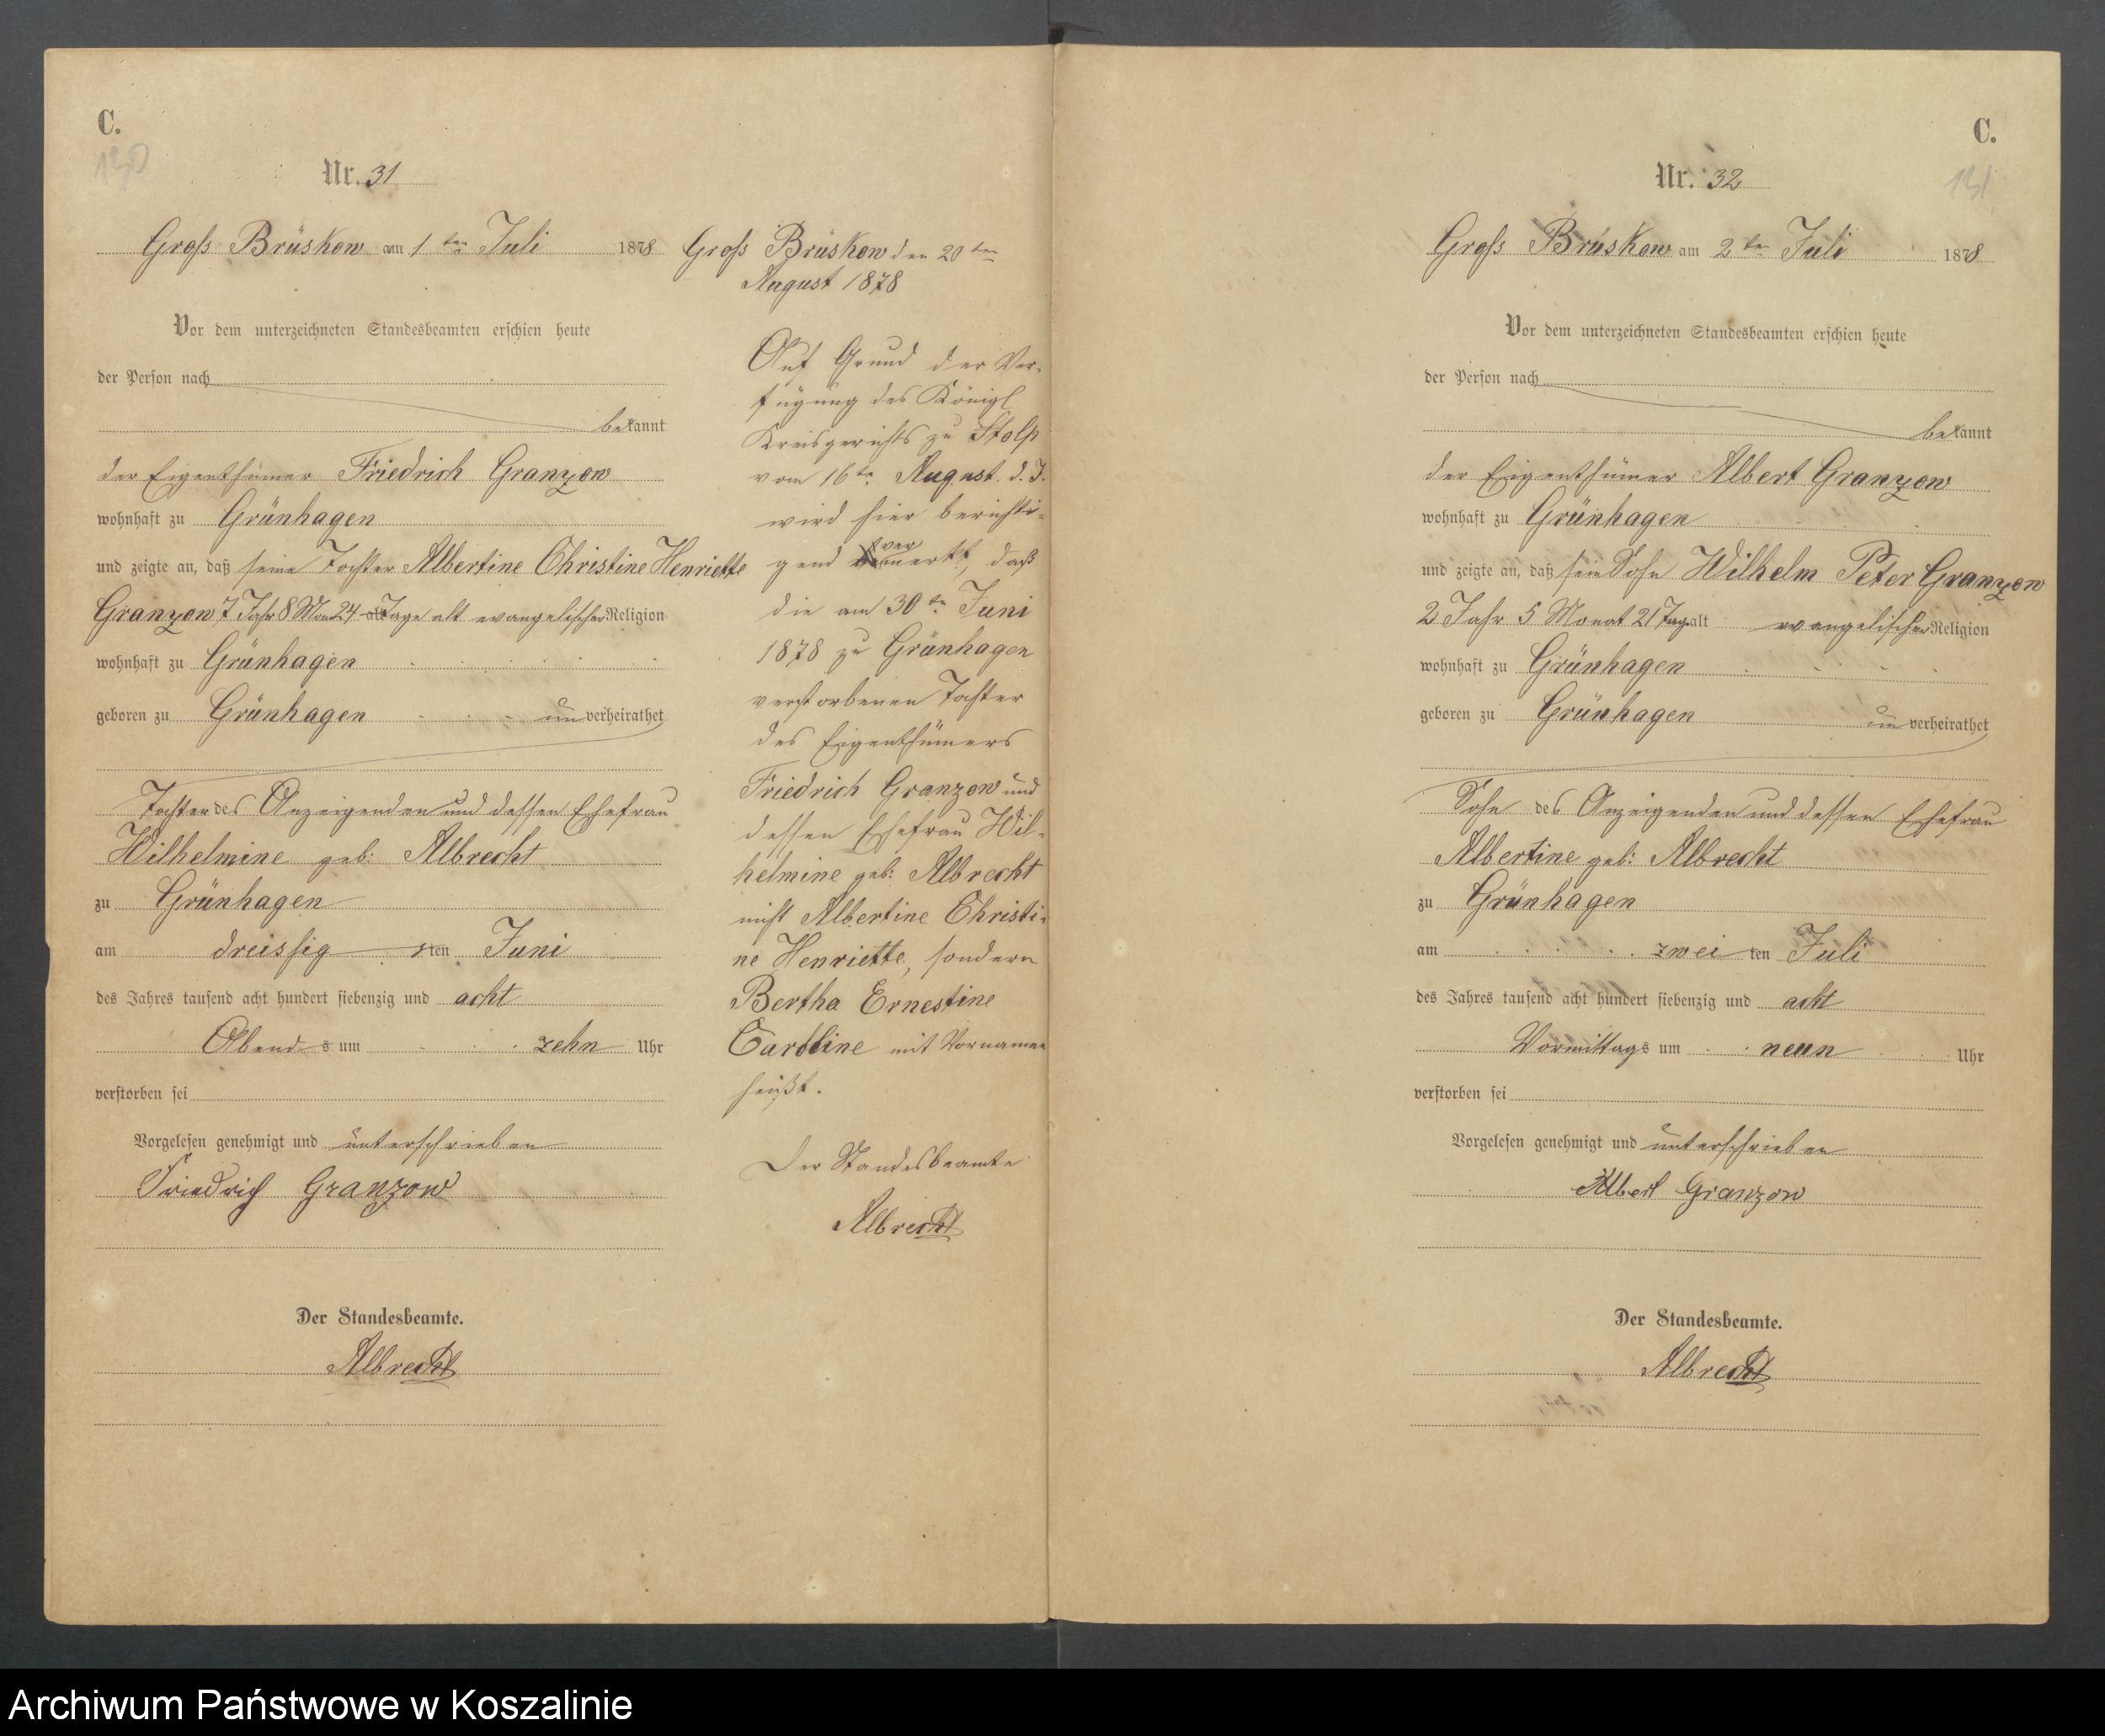 C.
130
Nr. 31
Groß Brüskow am 1ten Juli 1878
Vor dem unterzeichneten Standesbeamten erschien heute
der Person nach
bekannt
der Eigenthümer Friedrich Granzow
wohnhaft zu Grünhagen
und zeigte an, daß seine Tochter Albertine Christine Henriette
Granzow 7 Jahr 8 Mon 24 Tage alt evangelischer Religion
wohnhaft zu Grünhagen
geboren zu Grünhagen unverheirathet
Tochter des Anzeigenden und dessen Ehefrau
Wilhelmine geb: Albrecht
zu Grünhagen
am dreissigsten Juni
des Jahres tausend acht hundert siebenzig und acht
Abends um zehn Uhr
verstorben sei
Vorgelesen genehmigt und unterschrieben
Friedrich Granzow
Der Standesbeamte.
Albrecht
Groß Brüskow den 20ten
August 1878
Auf Grund der Ver-
fügung des Königl
Kreisgerichts zu Stolp
vom 16ten August d. J.
wird hier berichti-
gend vermerkt, daß
die am 30ten Juni
1878 zu Grünhagen
verstorbenen Tochter
des Eigenthümers
Friedrich Granzow und
dessen Ehefrau Wil-
helmine geb: Albrecht
nicht Albertine Christi-
ne Henriette, sondern
Bertha Ernestine
Caroline mit Vornamen
heißt.
Der Standesbeamte
Albrecht
C.
131
Nr. 32
Groß Brüskow am 2ten Juli 1878
Vor dem unterzeichneten Standesbeamten erschien heute
der Person nach
bekannt
der Eigenthümer Albert Granzow
wohnhaft zu Grünhagen
und zeigte an, daß sein Sohn Wilhelm Peter Granzow
2 Jahr 5 Monat 21 Tage alt evangelischer Religion
wohnhaft zu Grünhagen
geboren zu Grünhagen unverheirathet
Sohn des Anzeigenden und dessen Ehefrau
Albertine geb: Albrecht
zu Grünhagen
am zweiten Juli
des Jahres tausend acht hundert siebenzig und acht
Vormittags um neun Uhr
verstorben sei
Vorgelesen genehmigt und unterschrieben
Albert Granzow
Der Standesbeamte.
Albrecht
Archiwum Państwowe w Koszalinie